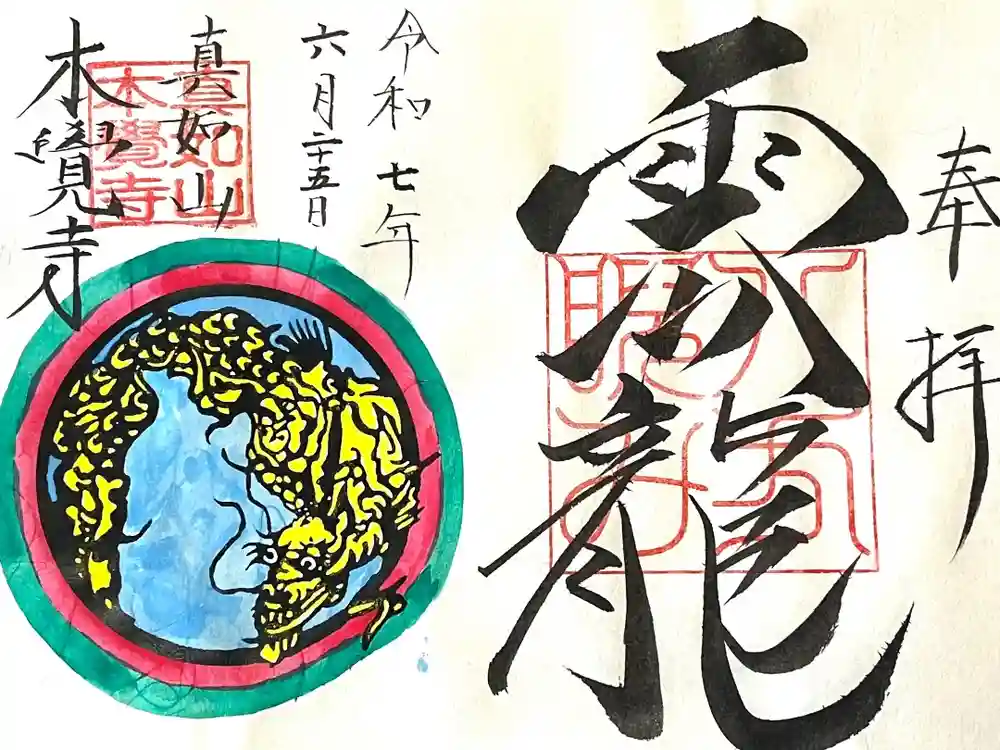 奉拝
雲龍
令和七年
六月二十五日
真如山
本覺寺
眞如山
本覺寺